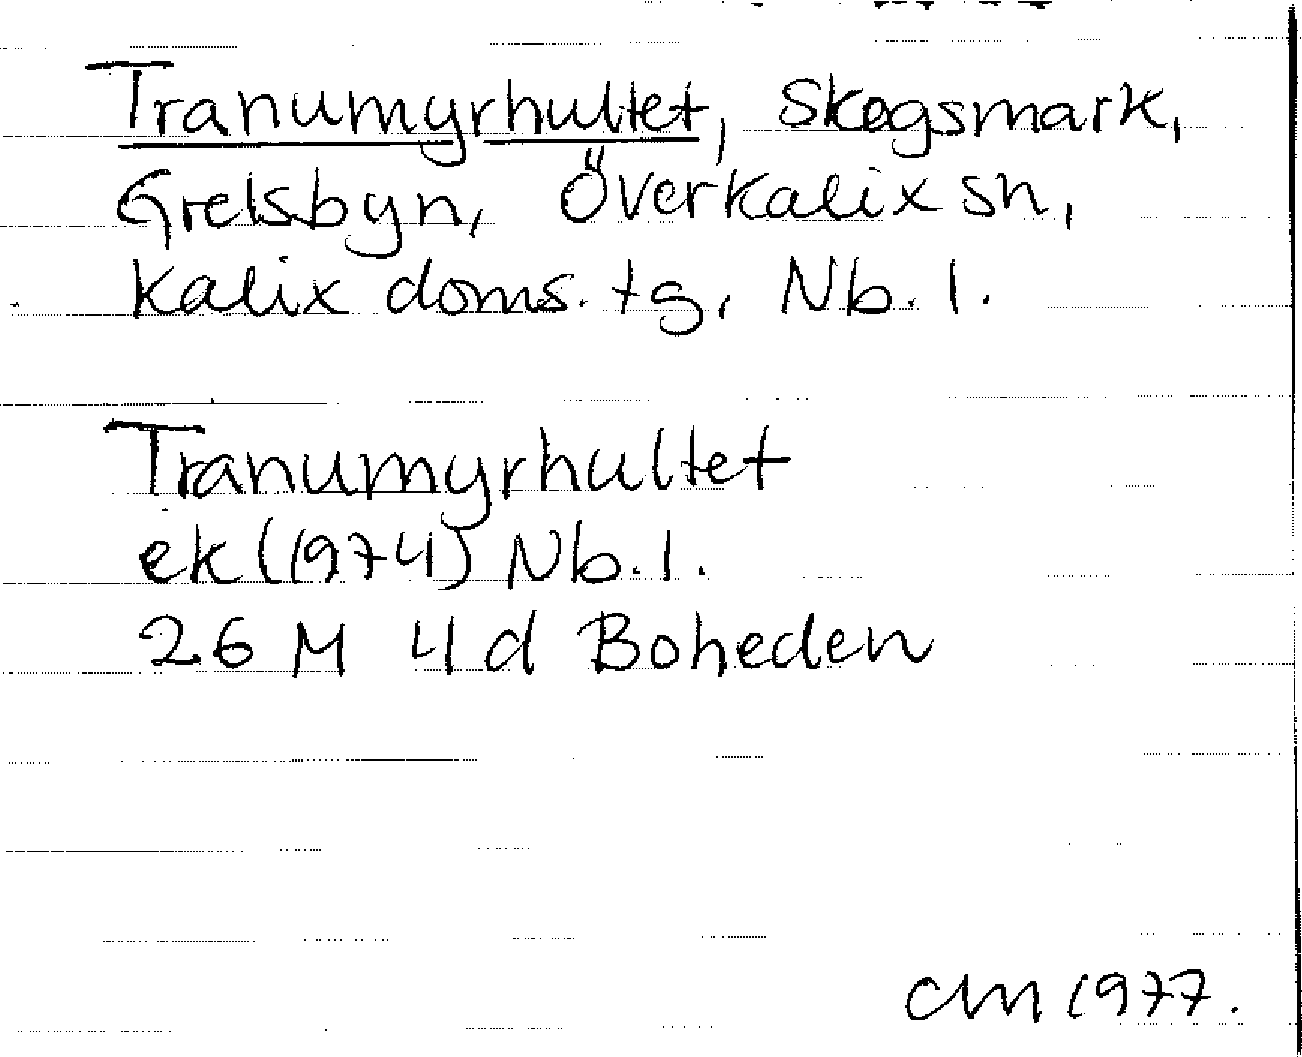 Tranumyrhultet, Skogsmark,
Grelsbyn, Överkalix sn,
Kalix doms. tg, Nb. l.
Tranumyrhultet
ek (1974) Nb. l.
26 M 4d Boheden
CLM 1977.